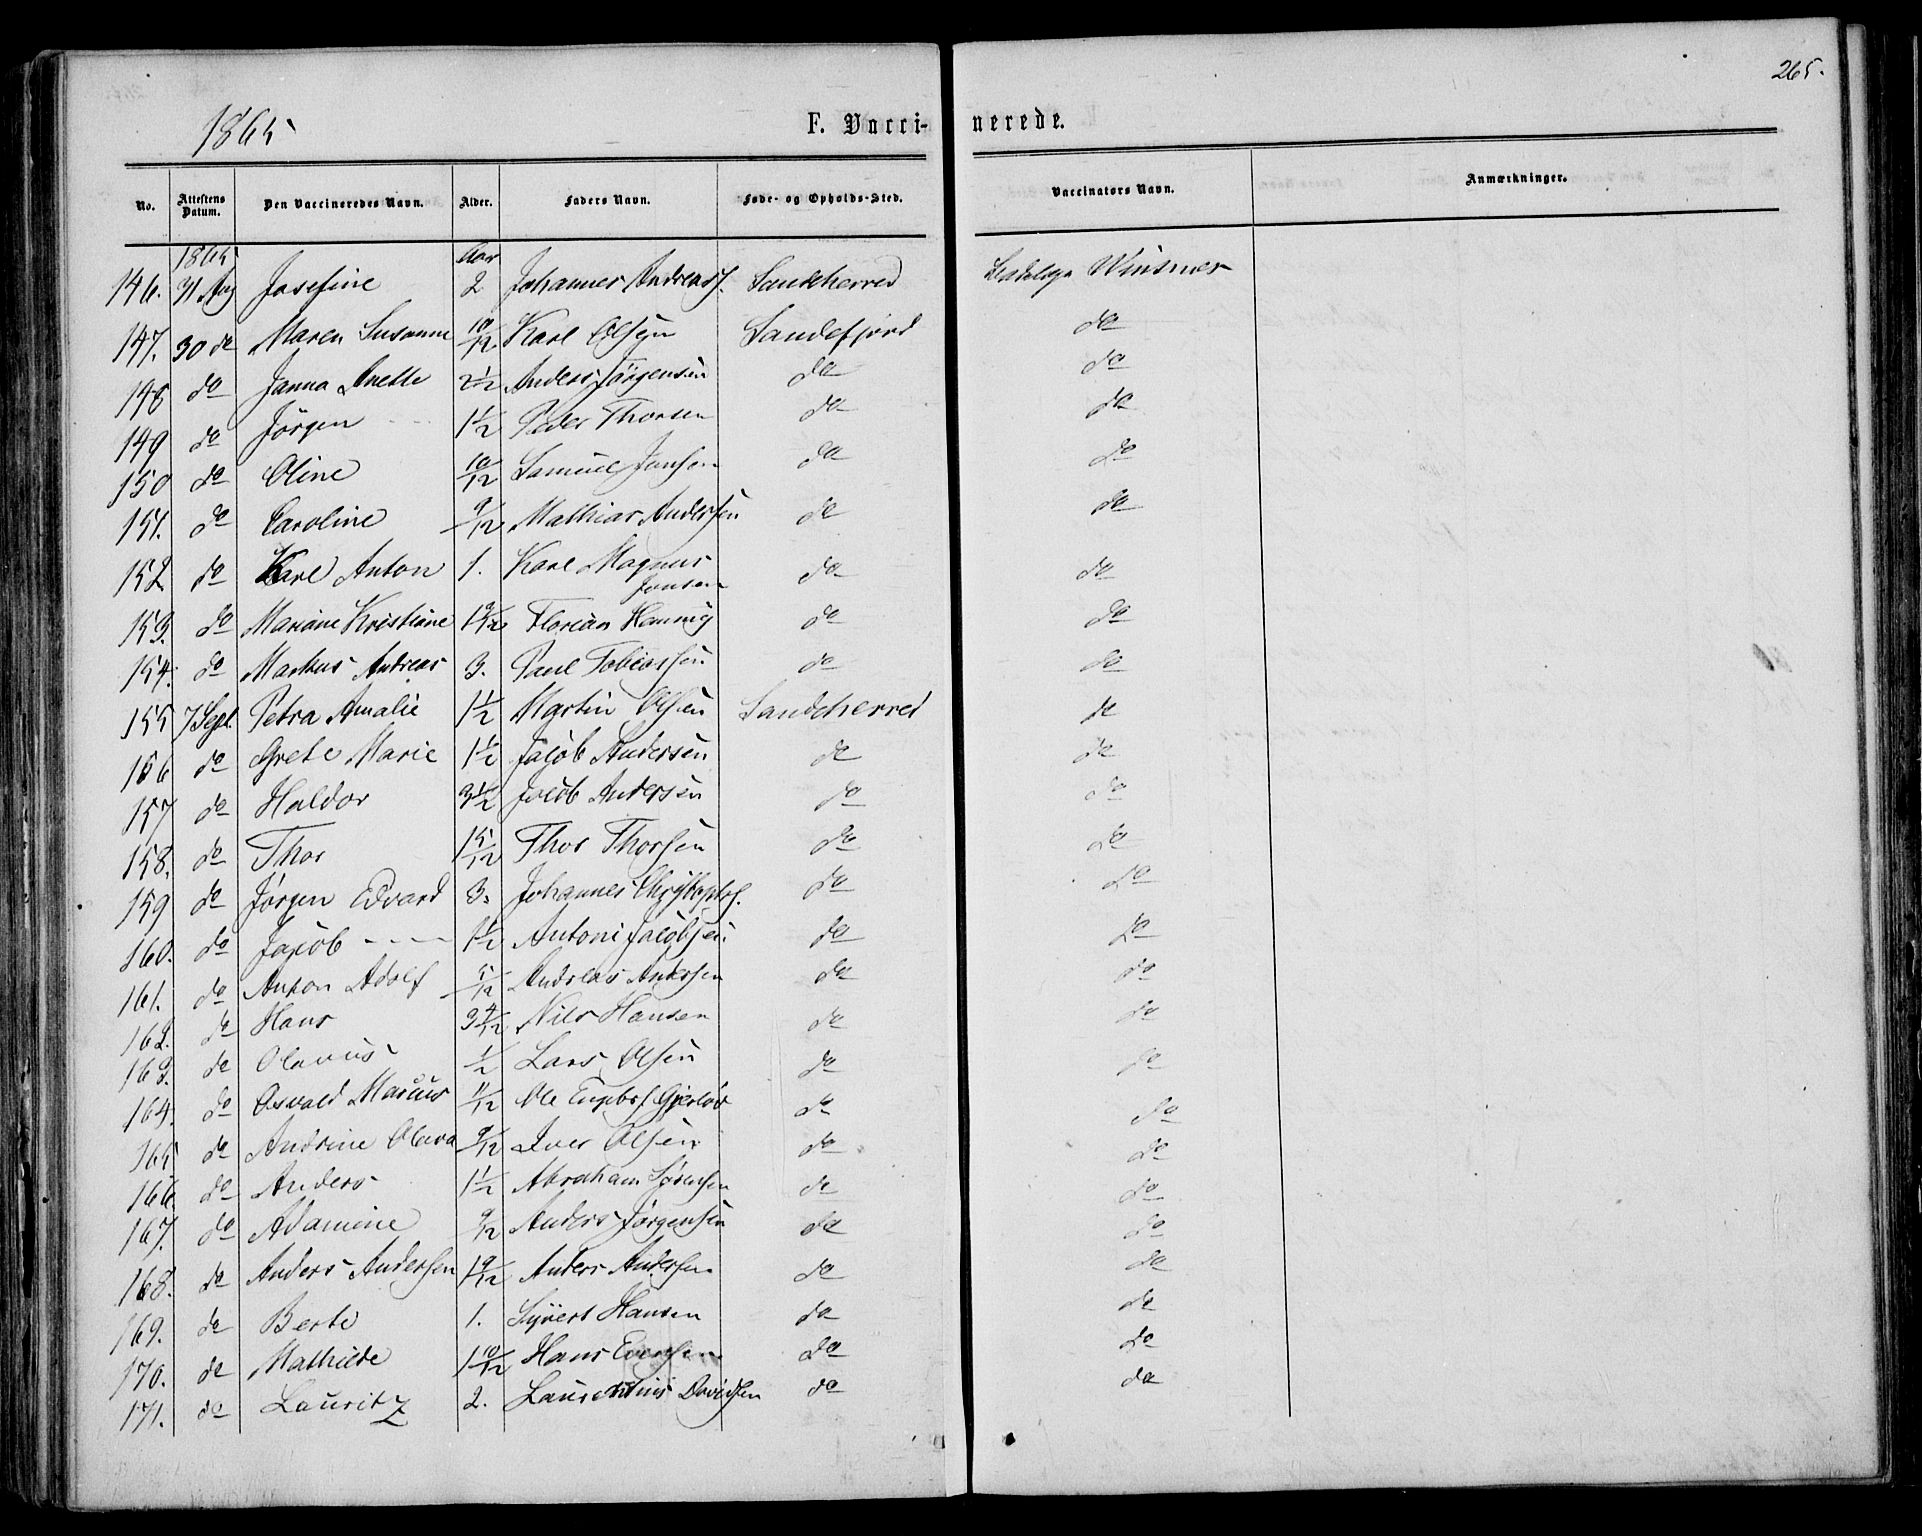 265.
1865
F. Vacci- nerede.
No. Attestens Datum. Den Vaccineredes Navn. Alder. Faders Navn. Føde- og Opholds-Sted. Vaccinators Navn. Anmærkninger.
1865 Aar
146. 31 Aug Josefine 2 Johannes Andreass. Sandeherred Winsnes
147. 30 do Maren Susanne 10/12 Karl Olsen Sandefjord do
148 do Janna Anette 2½ Anders Jörgensen do do
149 do Jörgen 1½ Peder Thorsen do do
150 do Oline 10/12 Samuel Jansen do do
151. do Caroline 9/12 Mathias Andersen do do
152 do Karl Anton 1. Karl Magnus Jonsen do do
153. do Mariane Kristiane 1 9/12 Florian Hannig do do
154. do Markus Andreas 3. Paul Tobiassen do do
155 7 Sept. Petra Amalie 1½ Martin Olsen Sandeherred do
156 do Grete Marie 1½ Jacob Andersen do do
157 do Haldor 3½ Jacob Andersen do do
158. do Thor 15/12 Thor Thorsen do do
159 do Jörgen Edvard 3. Johannes Christophs. do do
160. do Jacob 1½ Antoni Jacobsen do do
161. do Anton Adolf 5/12 Andreas Andersen do do
162. do Hans 3 4/12 Nils Hansen do do
163. do Olavus ½ Lars Olsen do do
164. do Osvald Marcus 11/12 Ole Engebs. Gjerløv do do
165 do Andrine Olava 9/12 Iver Olsen do do
166. do Anders 1½ Abraham Sørensen do do
167. do Adamine 9/12 Anders Jørgensen do do
168. do Anders Andersen 1 9/12 Anders Andersen do do
169. do Berte 1. Syvert Hansen do do
170. do Mathilde 1 10/12 Hans Evensen do do
171. do Lauritz 2. Laurentius Davidsen do do